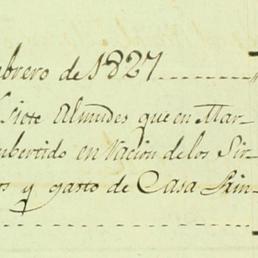 brero de 1827
siete Almudes que en Mar-
nbertido en racion de los Sir-
os y gasto de Casa Prin-